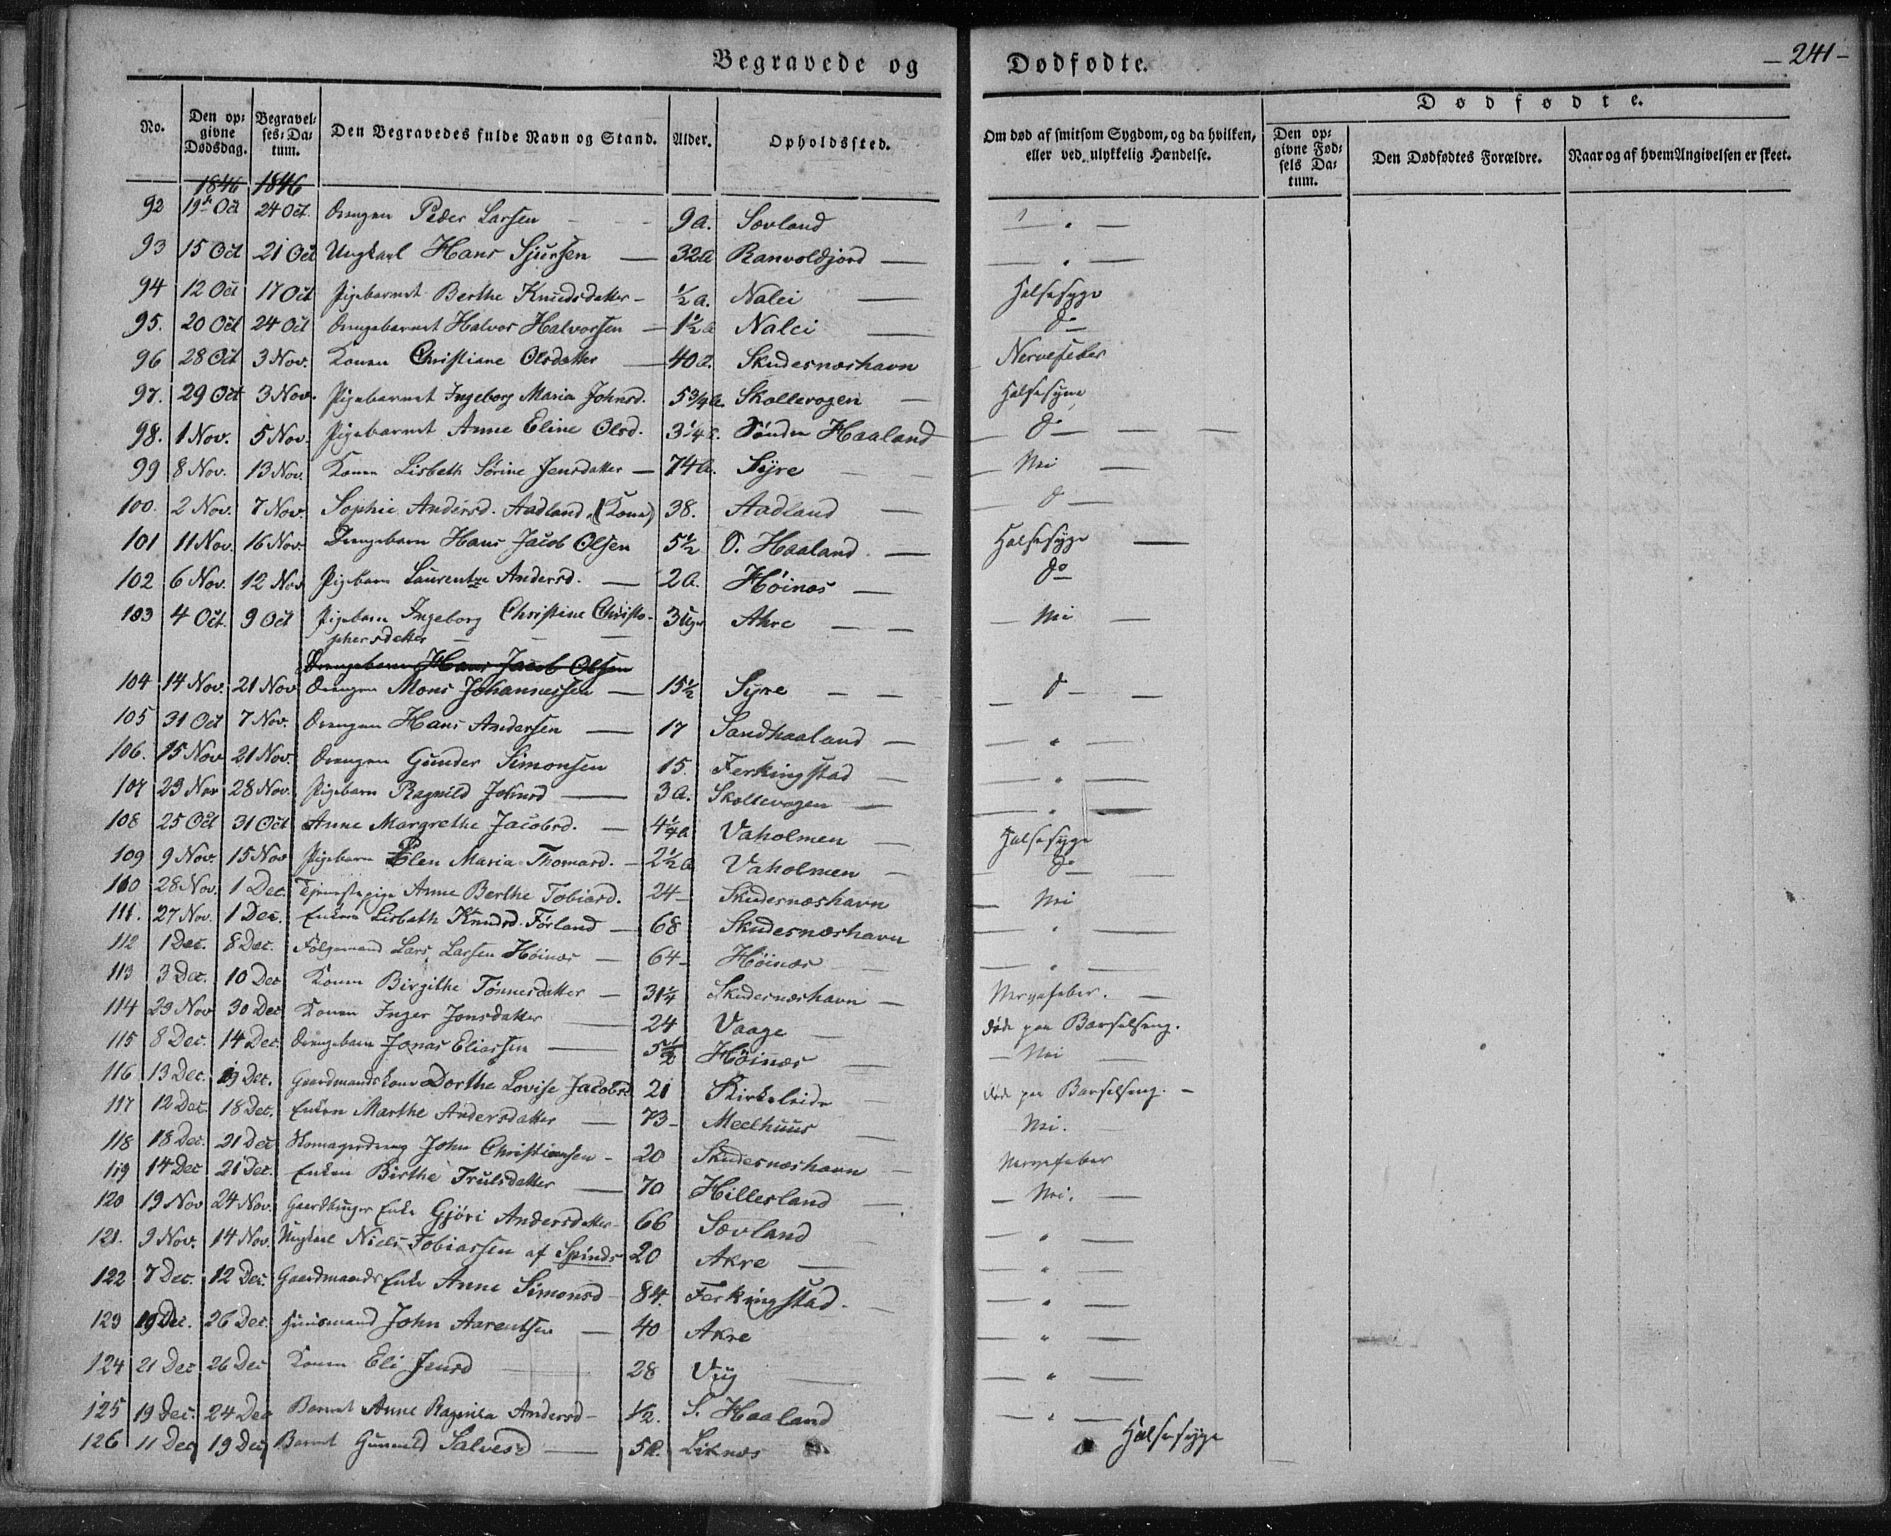 Begravede og Dødfødte. – 241 –
No. | Den opgivne Dødsdag. | Begravelses-Datum. | Den Begravedes fulde Navn og Stand. | Alder. | Opholdssted. | Om død af smitsom Sygdom, og da hvilken, eller ved ulykkelig Hændelse. | Dødfødte. Den opgivne Fødsels Datum. | Den Dødfødtes Forældre. | Naar og af hvem Angivelsen er skeet.
1846 | 1846
92 | 19de Oct | 24 Oct. | Drengen Peder Larsen | 9 a. | Sævland | "
93 | 15 Oct | 21 Oct | Ungkarl Hans Sjursen | 32 a | Ranvoldjord | "
94 | 12 Oct | 17 Oct | Pigebarnet Berthe Knudsdatter | ½ a. | Nalei | Halsesyge
95. | 20 Oct | 24 Oct | Drengebarnet Halvor Halvorsen | 1½ a | Nalei | do
96 | 28 Oct | 3 Nov. | Konen Christiane Olsdatter | 40 a. | Skudesnæshavn | Nervefeber
97. | 29 Oct | 3 Nov. | Pigebarnet Ingeborg Maria Johnsd. | 5¾ a. | Skollevogen | Halsesyge
98. | 1 Nov. | 5 Nov. | Pigebarnet Anne Eline Olsd. | 3¼ a. | Sönder Haaland | do
99 | 8 Nov. | 13 Nov. | Konen Lisbeth Sörine Jensdatter | 74 a. | Syre | Nei
100. | 2 Nov. | 7 Nov. | Sophie Andersd. Aadland. (Kone) | 38. | Aadland | d
101 | 11 Nov. | 16 Nov. | Drengebarn Hans Jacob Olsen | 5½ | O. Haaland | Halsesyge
102 | 6 Nov. | 12 Nov | Pigebarn Laurentze Andersd. | 2 a. | Höinæs | do
103 | 4 Oct. | 9 Oct | Pigebarn Ingeborg Christine Christo-
phersdatter | 3 Uger | Akre | Nei
Drengebarn Hans Jacob Olsen
104 | 14 Nov. | 21 Nov | Drengen Mons Johannessen | 15½ | Syre | d
105 | 31 Oct | 7 Nov. | Drengen Hans Andersen | 17 | Sandhaaland | "
106. | 15 Nov | 21 Nov. | Drengen Gunder Simonsen | 15. | Ferkingstad | "
107 | 23 Nov | 28 Nov. | Pigebarn Ragnild Johnsd | 3 a. | Skollevogen | "
108 | 25 Oct | 31 Oct | Anne Margrethe Jacobsd. | 4¼ a | Vaholmen | Halsesyge
109 | 9 Nov. | 15 Nov | Pigebarn Elen Maria Thomasd. | 2½ a | Vaholmen | do
110 | 28 Nov. | 1 Dec. | Tjenestepige Anne Berthe Tobiasd. | 24 | Skudesnæshavn | Nei
111. | 27 Nov. | 1 Dec. | Enken Lisbeth Knudsd. Förland | 68 | Skudesnæshavn | "
112 | 1 Dec. | 8 Dec. | Følgemand Lars Larsen Höinæs | 64 | Höinæs | "
113 | 3 Dec. | 10 Dec | Konen Birgithe Tönnesdatter | 31¼ | Skudesnæshavn | Nervefeber.
114 | 23 Nov | 30 Dec | Konen Inger Jonsdatter | 24 | Vaage | døde paa Barselseng.
115 | 8 Dec. | 14 Dec. | Drengebarn Jonas Eliassen | 5½ | Höinæs | Nei
116 | 13 Dec. | 19 Dec. | Gaardmandskone Dorthe Lovise Jacobsd | 21 | Kirkeleide | døde paa Barselseng.
117 | 12 Dec. | 18 Dec. | Enken Marthe Andersdatter | 73 | Meelhuus | Nei.
118 | 18 Dec. | 21 Dec | John Christiansen | 20 | Skudesnæshavn | Nervefeber
119 | 14 Dec | 21 Dec. | Enken Birthe Trulsdatter | 70 | Hillesland | Nei.
120 | 19 Nov | 24 Nov. | Gaardbruger Enke Gjöri Andersdatter | 66 | Sævland
121. | 9 Nov. | 14 Nov. | Ungkarl Niels Tobiassen af Spinds | 20 | Akre | "
122 | 7 Dec. | 12 Dec. | Gaardmands Enke Anne Simonsd | 84. | Ferkingstad. | "
123 | 19 Dec. | 26 Dec. | Huusmand John Aarentsen | 40 | Akre | "
124 | 21 Dec | 26 Dec | Konen Eli Jensd | 28 | Viig | "
125 | 19 Dec. | 24 Dec | Barnet Anne Ragnila Andersd | ½. | S. Haaland | "
126 | 11 Dec | 19 Dec | Barnet Gunnild Salvesd | 5 a. | Liknæs | Halsesyge